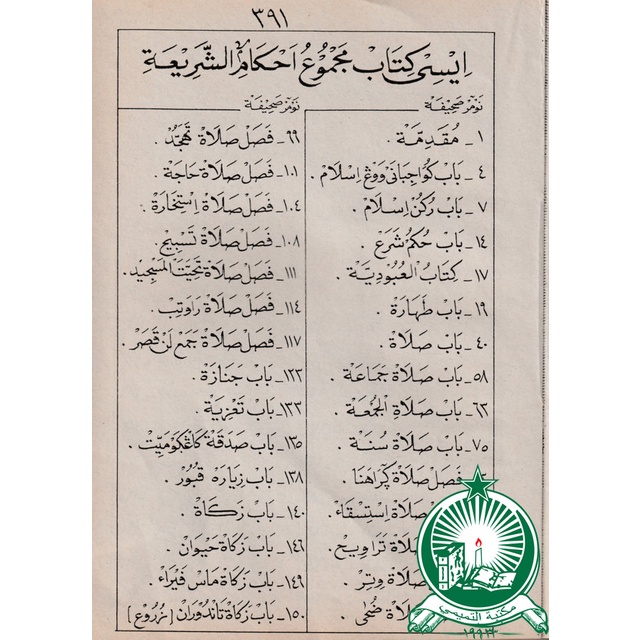 ٣٩١
ايسى كتاب مجموع احكام الشريعة
نومر صحيفة
١ـ مُقَدِّمَة .
٤ـ باب كواجباني ووڠ اسلام .
٧ـ باب ركن اسلام .
١٤ـ باب حكم شرع .
١٧ـ كتاب العبودية .
١٩ـ باب طهارة .
٤٠ـ باب صلاة .
٥٨ـ باب صلاة جماعة .
٦٣ـ باب صلاة الجمعة .
٧٥ـ باب صلاة سنة .
فصل صلاة كراهنا .
صلاة استسقاء .
صلاة تراويح .
صلاة وتر .
صلاة ضحى .
نومر صحيفة
٩٩ـ فصل صلاة تهجد .
١٠١ـ فصل صلاة حاجة .
١٠٤ـ فصل صلاة استخارة .
١٠٨ـ فصل صلاة تسبيح .
١١١ـ فصل صلاة تحيت المسجد .
١١٤ـ فصل صلاة رواتب .
١١٧ـ فصل صلاة جمع لن قصر .
١٢٣ـ باب جنازة .
١٣٣ـ باب تعزية .
١٣٥ـ باب صدقة كاڠكو ميت .
١٣٨ـ باب زياره قبور .
١٤٠ـ باب زكاة .
١٤٦ـ باب زكاة حيوان .
١٤٩ـ باب زكاة ماس فيراء .
١٥٠ـ باب زكاة تاندوران [زروع]
مكتبة التميمي
١٩٩٣